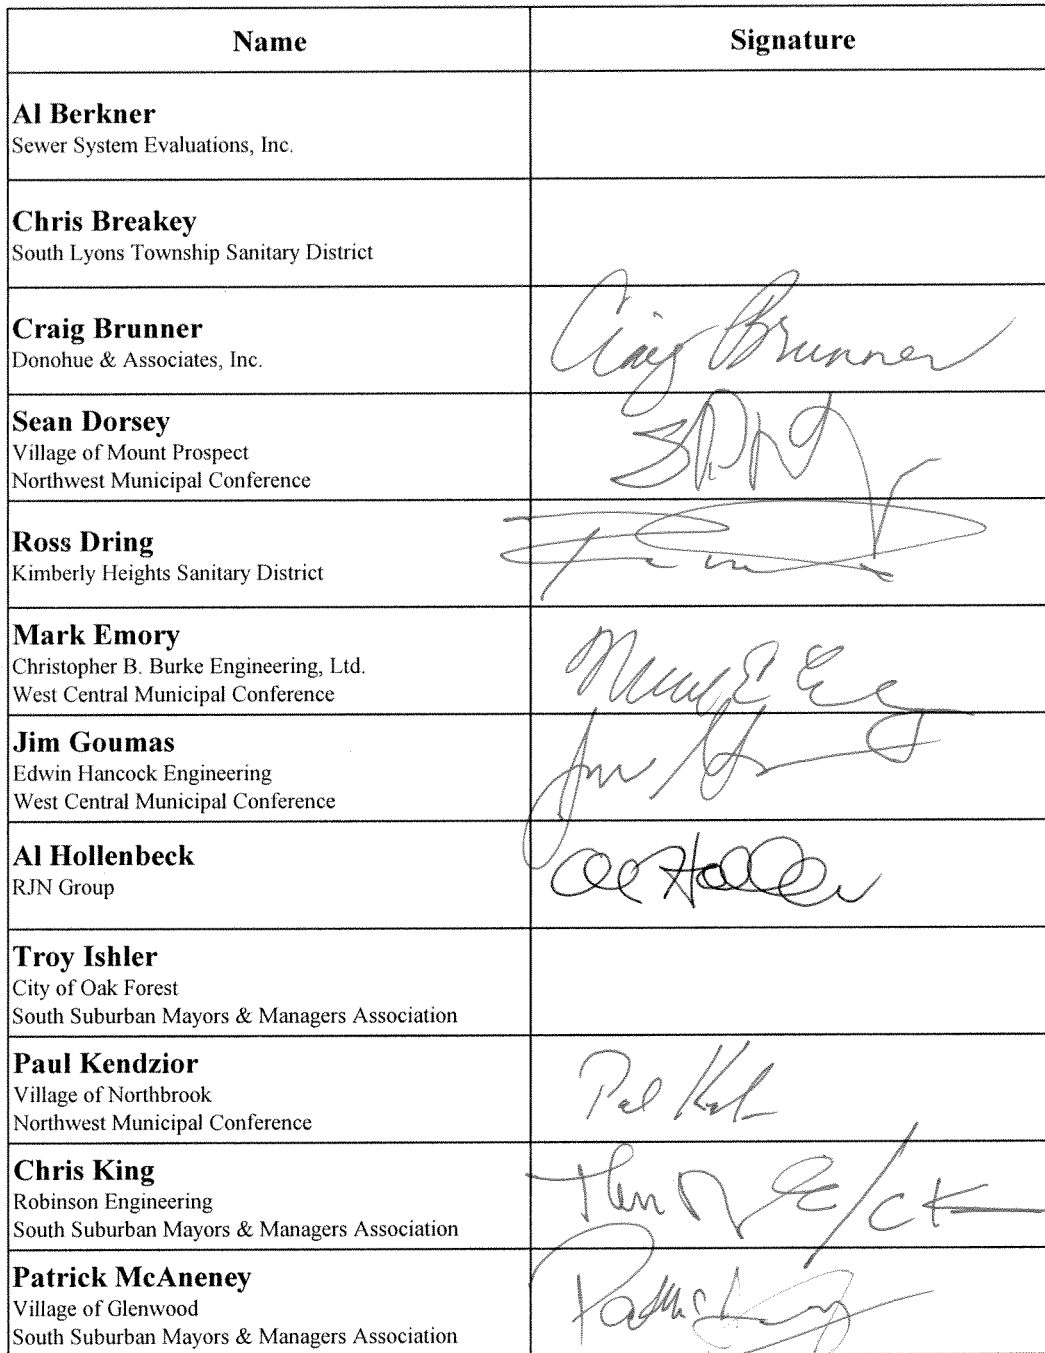 Name Signature
Al Berkner
Sewer System Evaluations, Inc.
Chris Breakey
South Lyons Township Sanitary District
Craig Brunner
Donohue & Associates, Inc.
Craig Brunner
Sean Dorsey
Village of Mount Prospect
Northwest Municipal Conference
Ross Dring
Kimberly Heights Sanitary District
Mark Emory
Christopher B. Burke Engineering, Ltd.
West Central Municipal Conference
Jim Goumas
Edwin Hancock Engineering
West Central Municipal Conference
Al Hollenbeck
RJN Group
Troy Ishler
City of Oak Forest
South Suburban Mayors & Managers Association
Paul Kendzior
Village of Northbrook
Northwest Municipal Conference
Chris King
Robinson Engineering
South Suburban Mayors & Managers Association
Patrick McAneney
Village of Glenwood
South Suburban Mayors & Managers Association